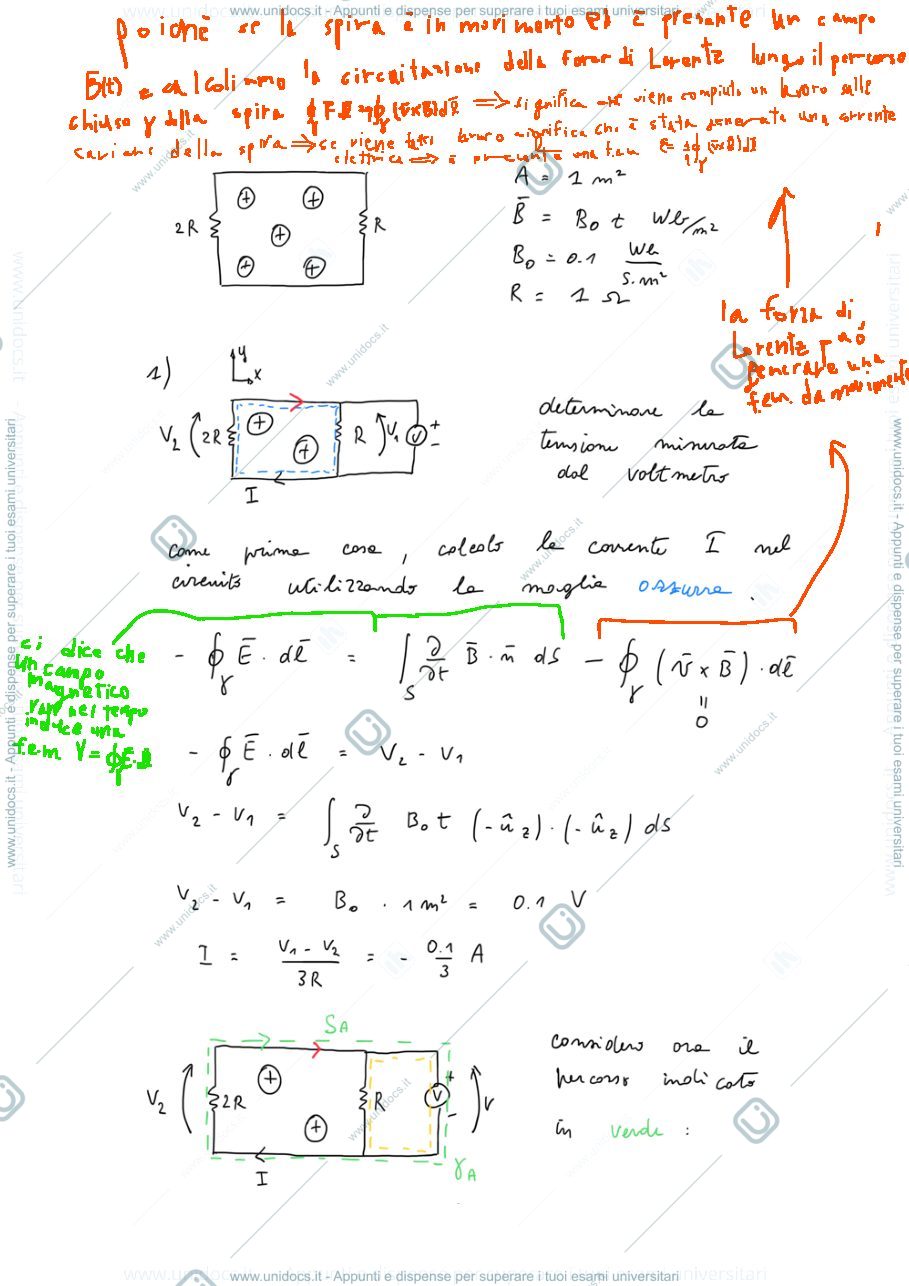 www.unidocs.it - Appunti e dispense per superare i tuoi esami universitari
poichè se la spira è in movimento ed è presente un campo
B(t) e calcoliamo la circuitazione della forza di Lorentz lungo il percorso
chiuso γ della spira ⇒ significa che viene compiuto un lavoro sulle
cariche della spira ⇒ se viene fatto lavoro significa che è stata generata una corrente
elettrica ⇒ è presente una f.e.m
A = 1 m²
2R
R
B̄ = B₀ t Wb/m²
B₀ = 0.1 Wb/s·m²
R = 1 Ω
la forza di
Lorentz può
generare una
f.e.m. da movimento
1)
y
x
V₂ 2R R V₁ V + -
I
determinare la
tensione misurata
dal voltmetro
come prima cosa, calcolo la corrente I nel
circuito utilizzando la maglia azzurra.
ci dice che
un campo
magnetico
var nel tempo
induce una
f.e.m V = ∮E·dl
- ∮γ Ē · dl̄ = ∫S ∂/∂t B̄ · n̄ dS - ∮γ (v̄ × B̄) · dl̄
= 0
- ∮γ Ē · dl̄ = V₂ - V₁
V₂ - V₁ = ∫S ∂/∂t B₀ t (-û_z) · (-û_z) dS
V₂ - V₁ = B₀ · 1 m² = 0.1 V
I = (V₁ - V₂)/3R = - 0.1/3 A
S_A
V₂ 2R R V + - V
I
γ_A
considero ora il
percorso indicato
in verde :
www.unidocs.it - Appunti e dispense per superare i tuoi esami universitari